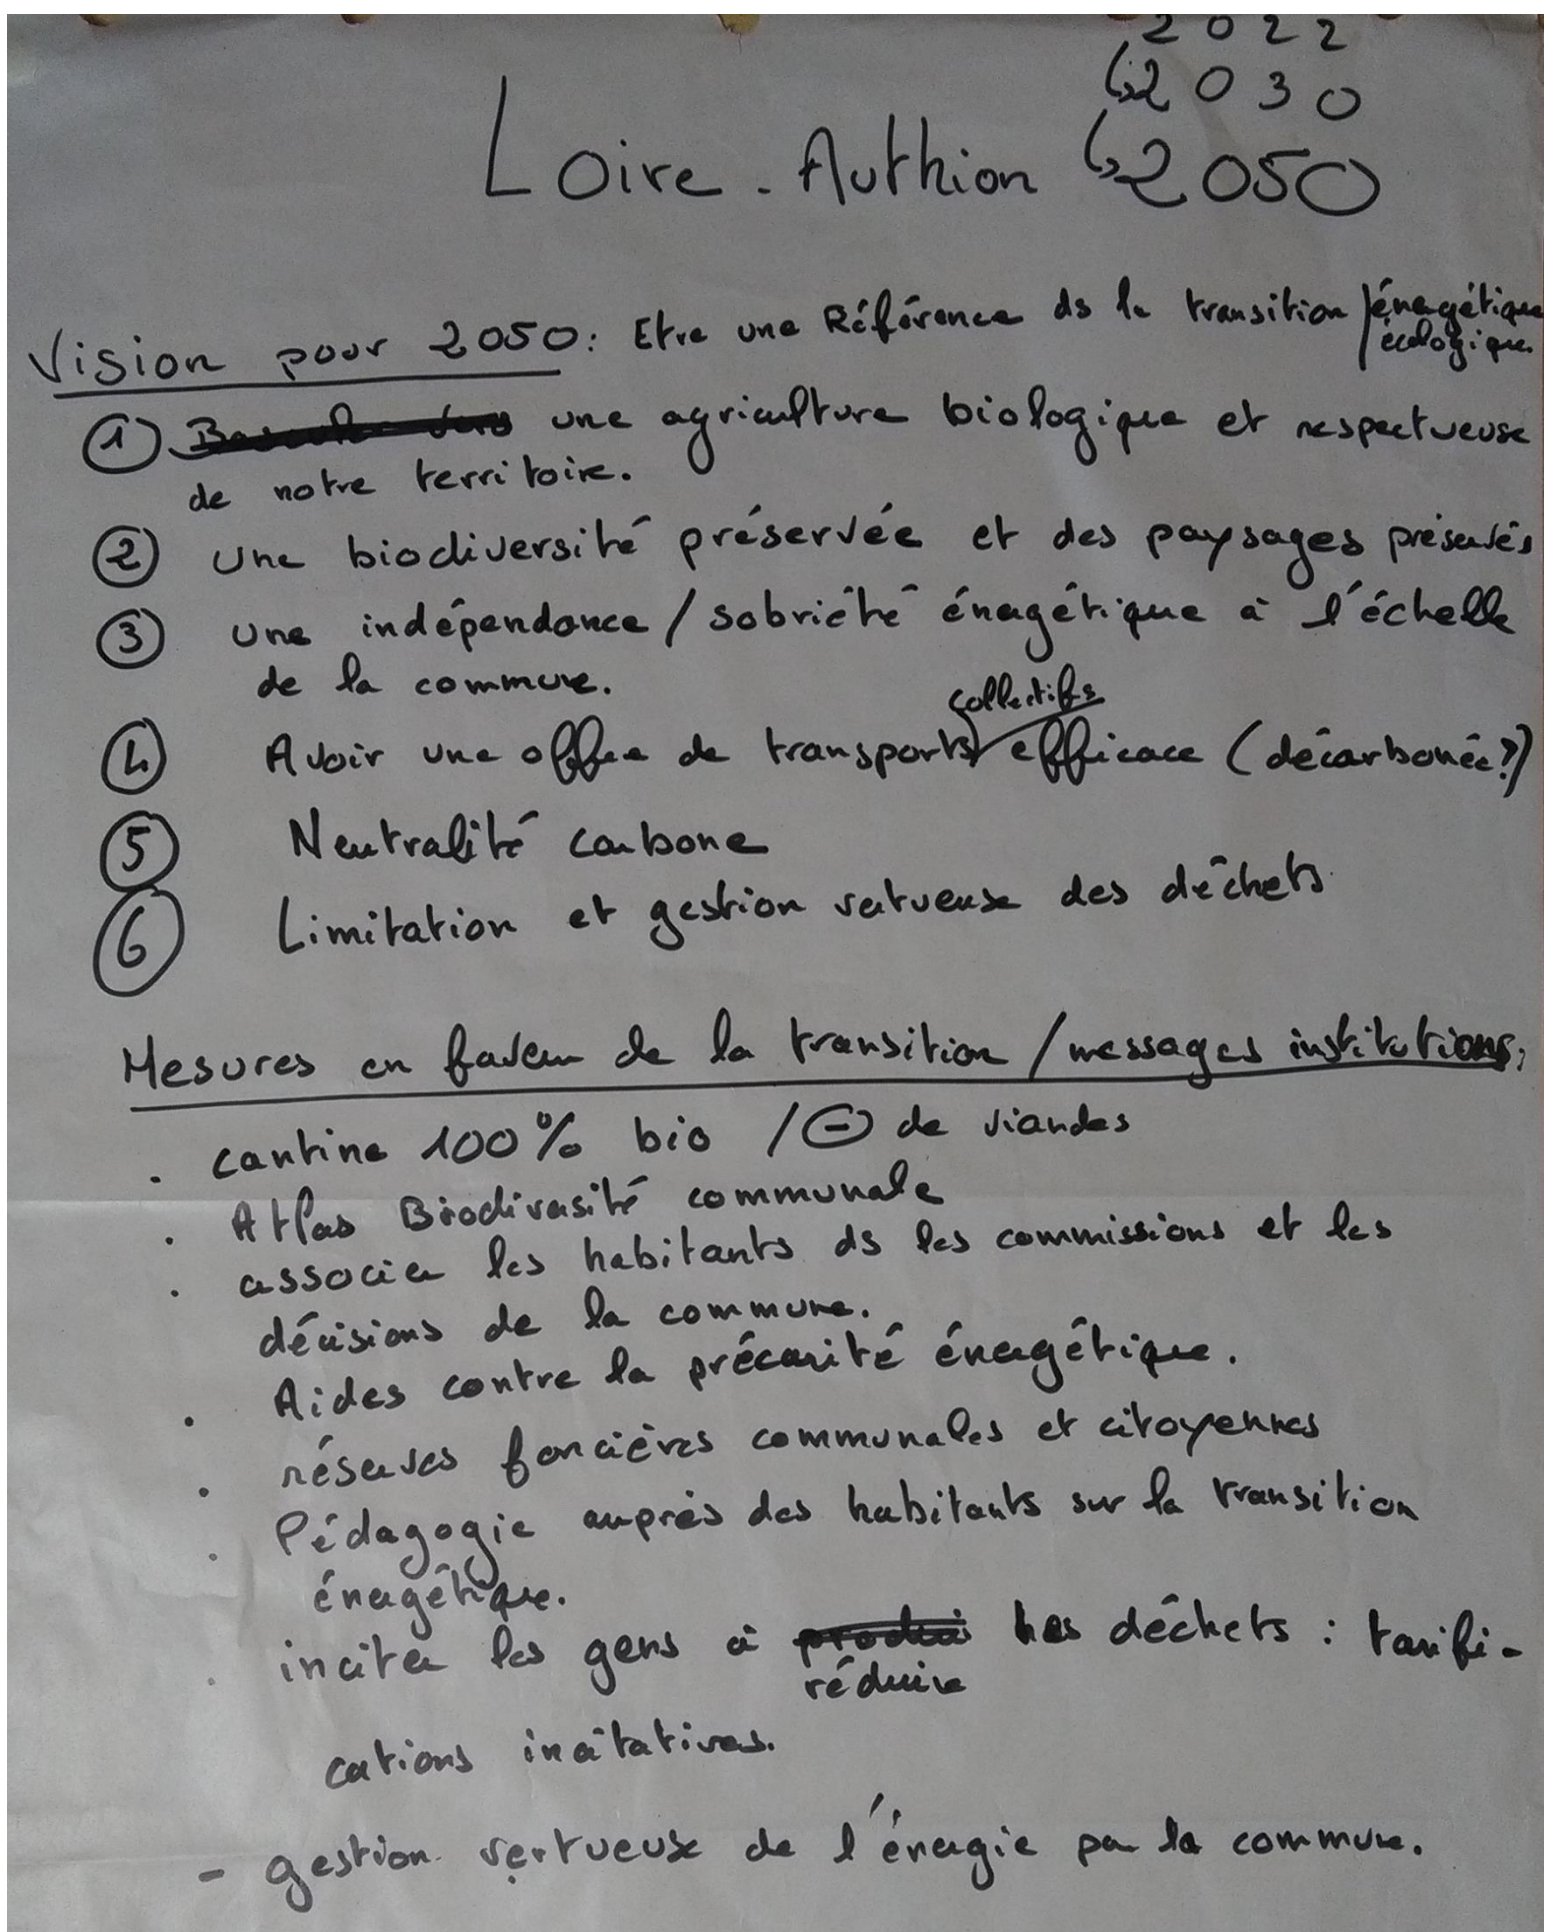 2022
↳ 2030
Loire-Authion ↳ 2050
Vision pour 2050 : Etre une Référence ds la transition / énergétique
écologique
① une agriculture biologique et respectueuse
de notre territoire.
② Une biodiversité préservée et des paysages préservés
③ Une indépendance / sobriété énergétique à l'échelle
de la commune.
collectifs
④ Avoir une offre de transports efficace (décarbonée ?)
⑤ Neutralité carbone
⑥ Limitation et gestion vertueuse des déchets
Mesures en faveur de la transition / messages institutions,
. cantine 100% bio / ⊖ de viandes
. Atlas Biodiversité communale
. associer les habitants ds les commissions et les
décisions de la commune.
. Aides contre la précarité énergétique.
. réserves foncières communales et citoyennes
. Pédagogie auprès des habitants sur la transition
énergétique.
. inciter les gens à produi les déchets : tarifi-
réduire
cations incitatives.
- gestion vertueuse de l'énergie par la commune.